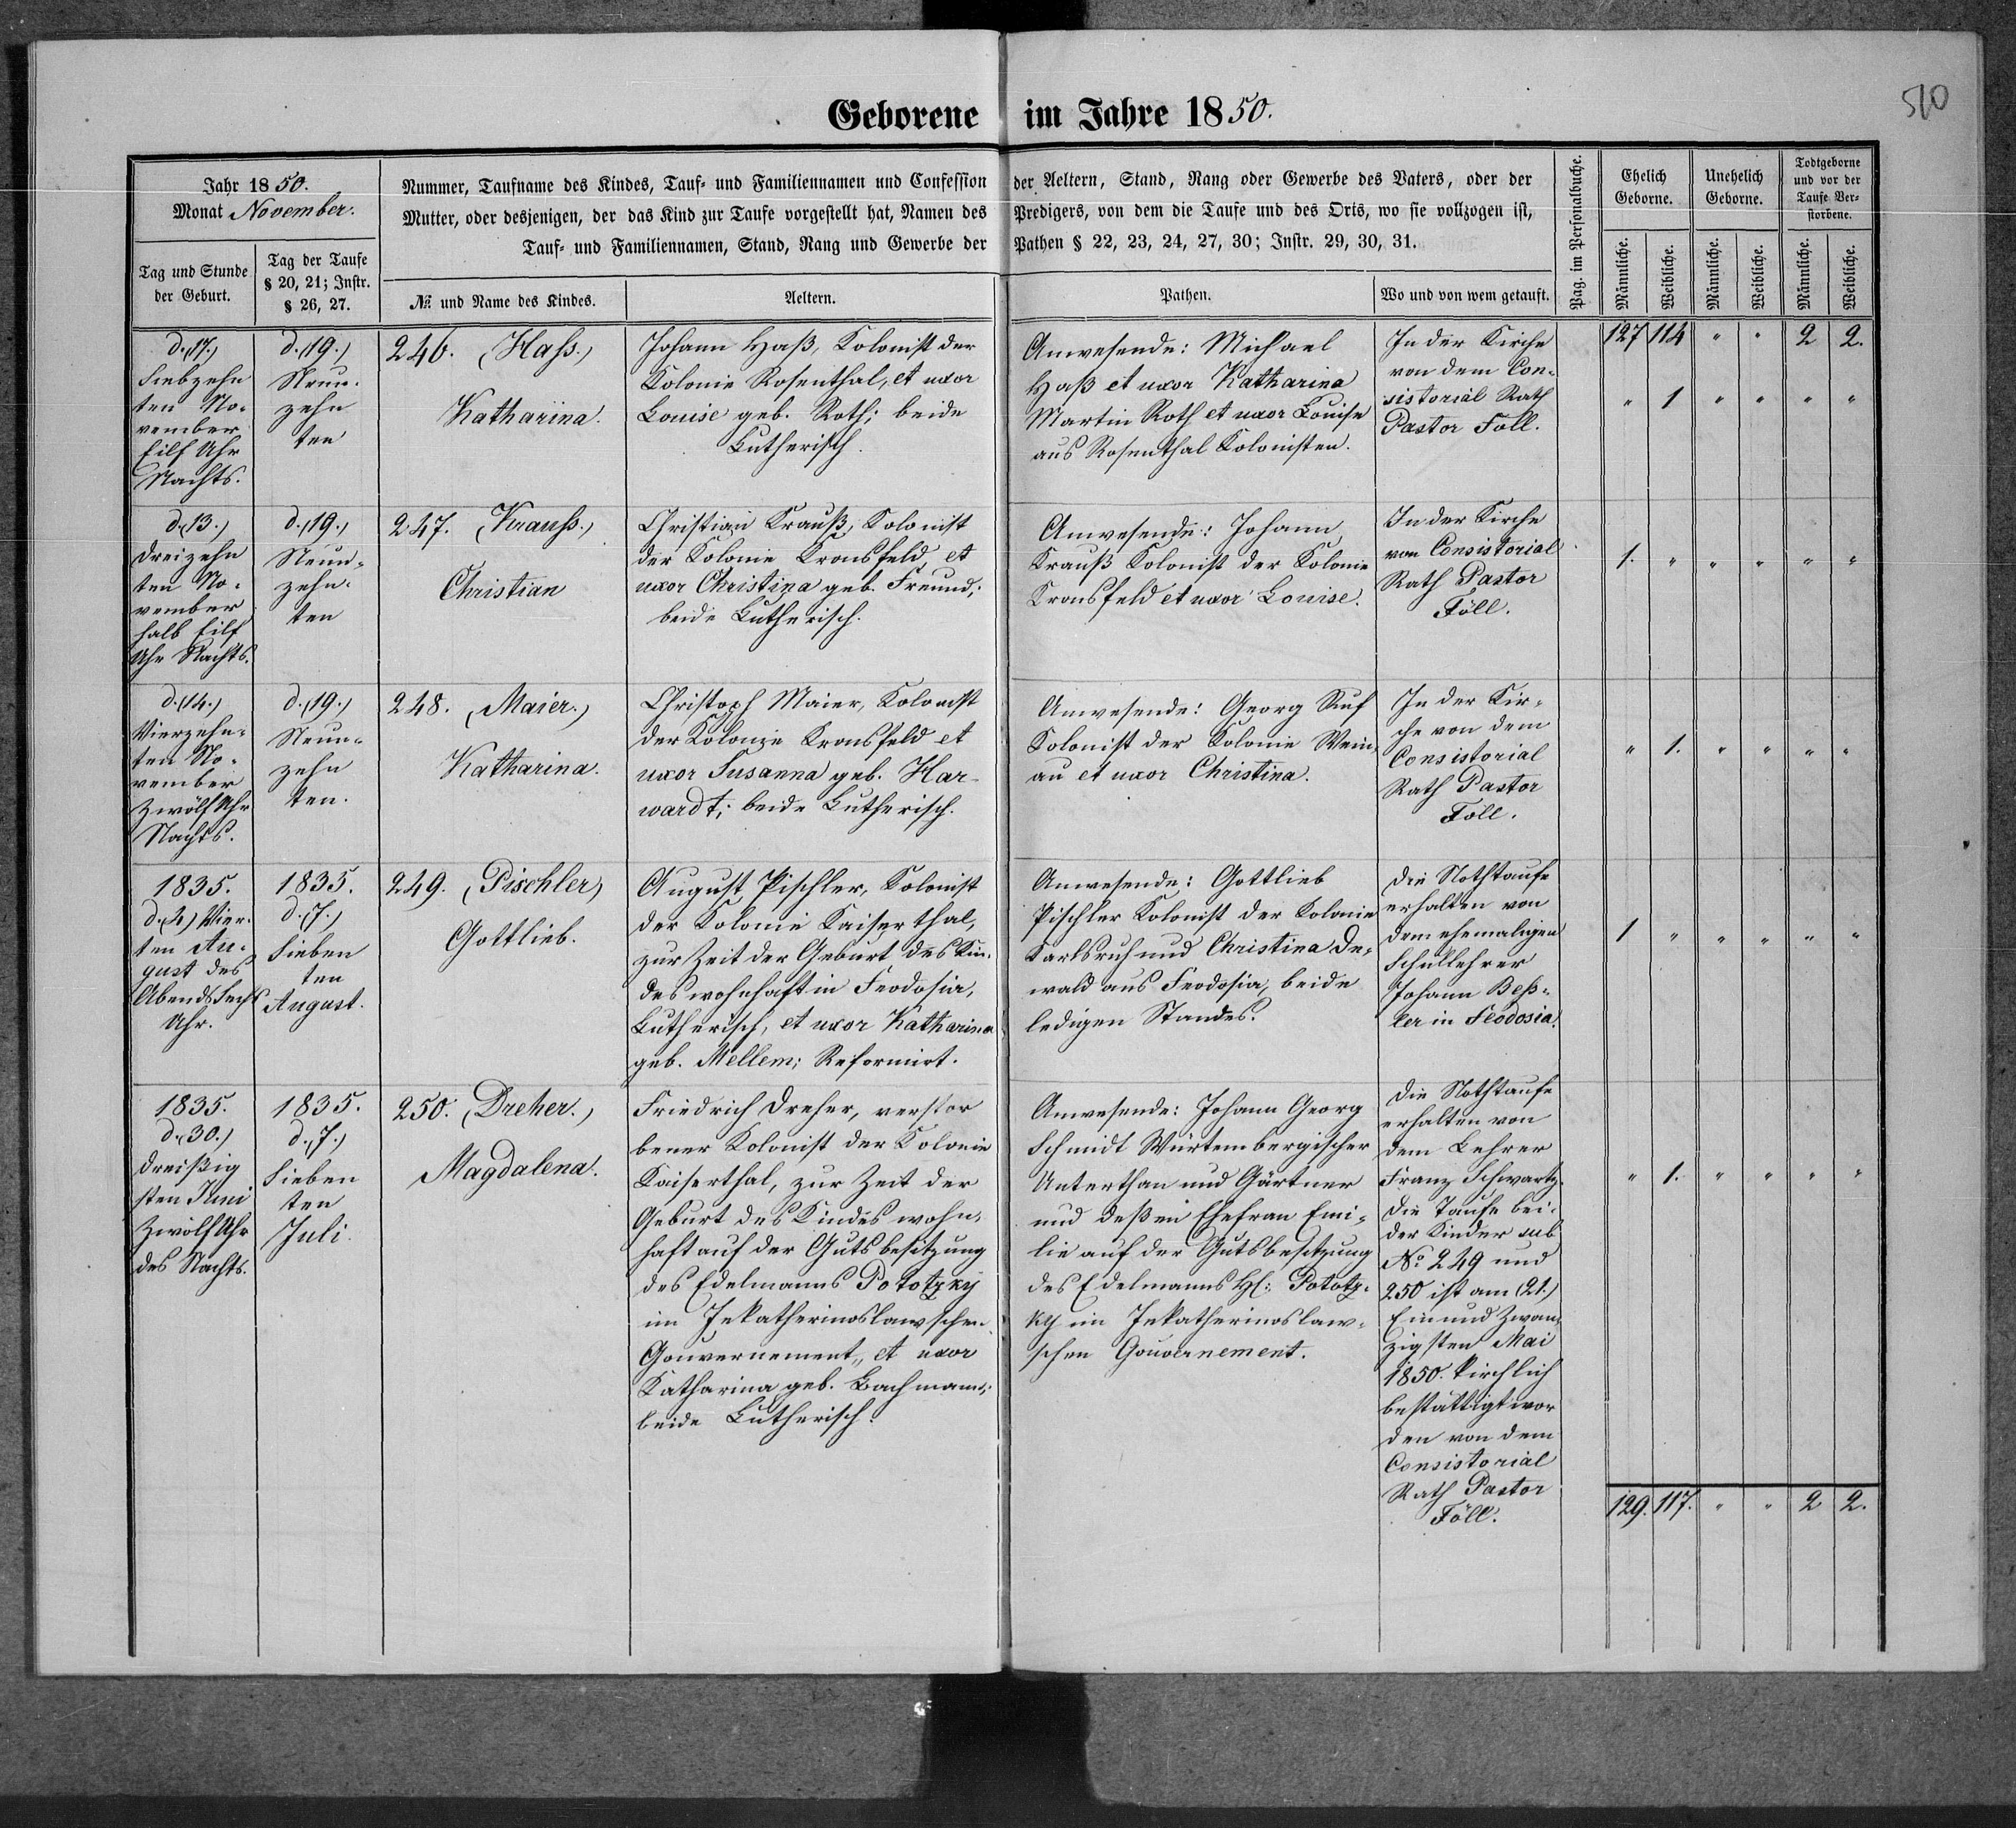 510
Geborene im Jahre 1850.
Jahr 1850.
Monat November.
Nummer, Taufname des Kindes, Tauf- und Familiennamen und Confession der Aeltern, Stand, Rang oder Gewerbe des Vaters, oder der
Mutter, oder desjenigen, der das Kind zur Taufe vorgestellt hat, Namen des Predigers, von dem die Taufe und des Orts, wo sie vollzogen ist,
Tauf- und Familiennamen, Stand, Rang und Gewerbe der Pathen § 22, 23, 24, 27, 30; Instr. 29, 30, 31.
Tag und Stunde
der Geburt.
Tag der Taufe
§ 20, 21; Instr.
§ 26, 27.
№ und Name des Kindes.
Aeltern.
Pathen.
Wo und von wem getauft.
Pag. im Personalbuche.
Ehelich
Geborne.
Unehelich
Geborne.
Todtgeborne
und vor der
Taufe Ver-
storbene.
Männliche.
Weibliche.
Männliche.
Weibliche.
Männliche.
Weibliche.
127 114 " " 2 2.
d. (17.)
Siebzehn
ten No-
vember
Eilf Uhr
Nachts.
d. (19.)
Neun-
zehn
ten
246. (Hass.)
Katharina.
Johann Haß, Kolonist der
Kolonie Rosenthal, et uxor
Louise geb. Roth; beide
Lutherisch.
Anwesende: Michael
Haß et uxor Katharina
Martin Roth et uxor Louise
aus Rosenthal Kolonisten.
In der Kirche
von dem Con-
sistorial Rath
Pastor Föll.
" 1 " " " "
d. (13.)
Dreizehn
ten No-
vember
halb Eilf
Uhr Nachts.
d. (19.)
Neun-
zehn-
ten
247. (Krauss.)
Christian
Christian Krauß, Kolonist
der Kolonie Kronsfeld et
uxor Christina geb. Freund;
beide Lutherisch.
Anwesende: Johann
Krauß Kolonist der Kolonie
Kronsfeld et uxor Louise.
In der Kirche
von Consistorial
Rath Pastor
Föll.
1. " " " " "
d. (14.)
Vierzehn-
ten No-
vember
Zwölf Uhr
Nachts.
d. (19.)
Neun-
zehn
ten.
248. (Maier.)
Katharina.
Christoph Maier, Kolonist
der Kolonie Kronsfeld et
uxor Susanna geb. Har-
wardt; beide Lutherisch.
Anwesende: Georg Ruf
Kolonist der Kolonie Wein-
au et uxor Christina.
In der Kir-
che von dem
Consistorial
Rath Pastor
Föll.
" 1. " " " "
1835.
d. (4) Vier-
ten Au-
gust des
Abends Sechs
Uhr.
1835.
d. (7.)
Sieben
ten
August.
249. (Pischler)
Gottlieb.
August Pischler, Kolonist
der Kolonie Kaiserthal,
zur Zeit der Geburt des Kin-
des wohnhaft in Feodosia,
Lutherisch, et uxor Katharina
geb. Mellem; Reformirt.
Anwesende: Gottlieb
Pischler Kolonist der Kolonie
Karlsruh und Christina De-
wald aus Feodosia, beide
ledigen Standes.
Die Nothtaufe
erhalten von
dem ehemaligen
Schullehrer
Johann Beß-
ler in Feodosia.
1 " " " " "
1835.
d. (30.)
Dreißig
sten Juni
Zwölf Uhr
des Nachts.
1835.
d. (7.)
Sieben
ten
Juli.
250. (Dreher.)
Magdalena.
Friedrich Dreher, verstor
bener Kolonist der Kolonie
Kaiserthal, zur Zeit der
Geburt des Kindes wohn-
haft auf der Gutsbesitzung
des Edelmanns Pototzky
im Jekatherinoslawschen
Gouvernement, et uxor
Katharina geb. Bachmann;
beide Lutherisch.
Anwesende: Johann Georg
Schmidt Würtembergischer
Unterthan und Gärtner
und deßen Ehefrau Emi-
lie auf der Gutsbesitzung
des Edelmanns H: Pototz-
ky im Jekatherinoslaw-
schen Gouvernement.
Die Nothtaufe
erhalten von
dem Lehrer
Franz Schwartz.
Die Taufe bei-
der Kinder sub
№ 249 und
250 ist am (21.)
Ein und Zwan-
zigsten Mai
1850. kirchlich
bestättigt wor
den von dem
Consistorial
Rath Pastor
Föll.
" 1. " " " "
129. 117. " " 2 2.